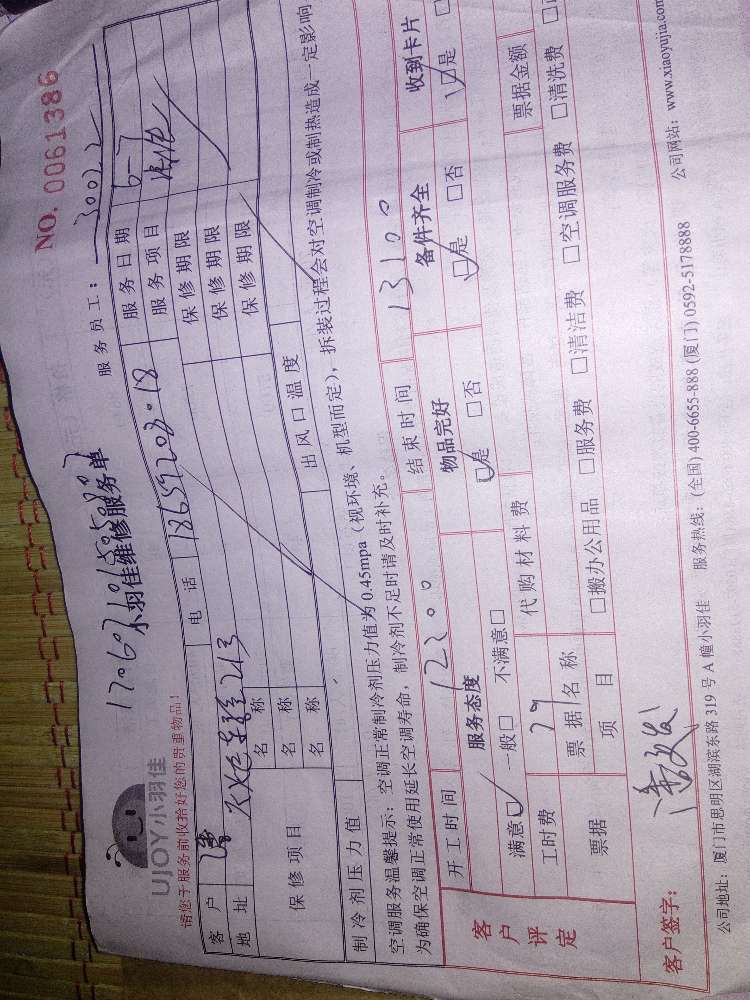 NO. 0061386
UJOY小羽佳
小羽佳维修服务单
服务员工： 30022
请您于服务前收拾好您的贵重物品！
客户 潘 电话 18659203018 服务日期 6-7
地址 213 服务项目
保修项目 名称 保修期限
名称 保修期限
名称 保修期限
制冷剂压力值 出风口温度
空调服务温馨提示：空调正常制冷剂压力值为0.45mpa（视环境、机型而定），拆装过程会对空调制冷或制热造成一定影响
为确保空调正常使用延长空调寿命，制冷剂不足时请及时补充。
开工时间 1200 结束时间 1300
客户评定 服务态度 物品完好 备件齐全 收到卡片
满意□ 一般□ 不满意□ □是 □否 □是 □否 □是
工时费 79 代购材料费 票据金额
票据 票据名称 □搬办公用品 □服务费 □清洁费 □空调服务费 □清洗费
项目
客户签字：
公司地址：厦门市思明区湖滨东路 319 号 A 幢小羽佳 服务热线：(全国) 400-6655-888 (厦门) 0592-5178888 公司网站：www.xiaoyujia.com